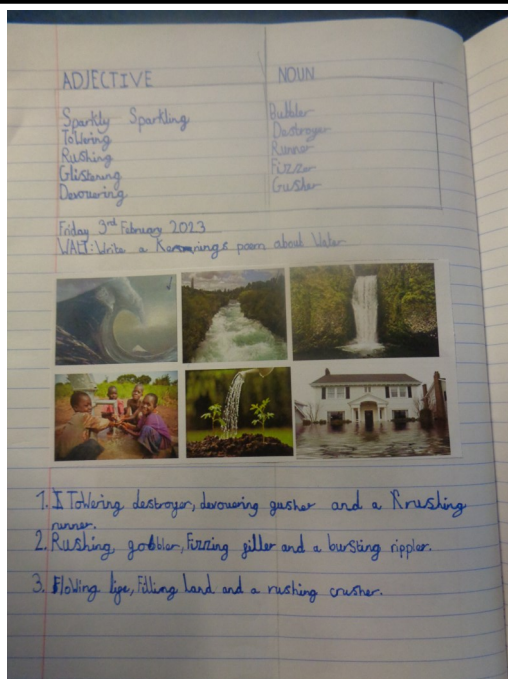 ADJECTIVE NOUN
Sparkly Sparkling Bubbler
Towering Destroyer
Rushing Runner
Glistening Fizzer
Devouering Gusher
Friday 3rd February 2023
WALT: Write a Kennings poem about Water
1. I Towering destroyer, devouering gusher and a Krushing
runner.
2. Rushing, gobbler, Fizzing giller and a bursting rippler.
3. Flowing lige, Filling land and a rushing crusher.